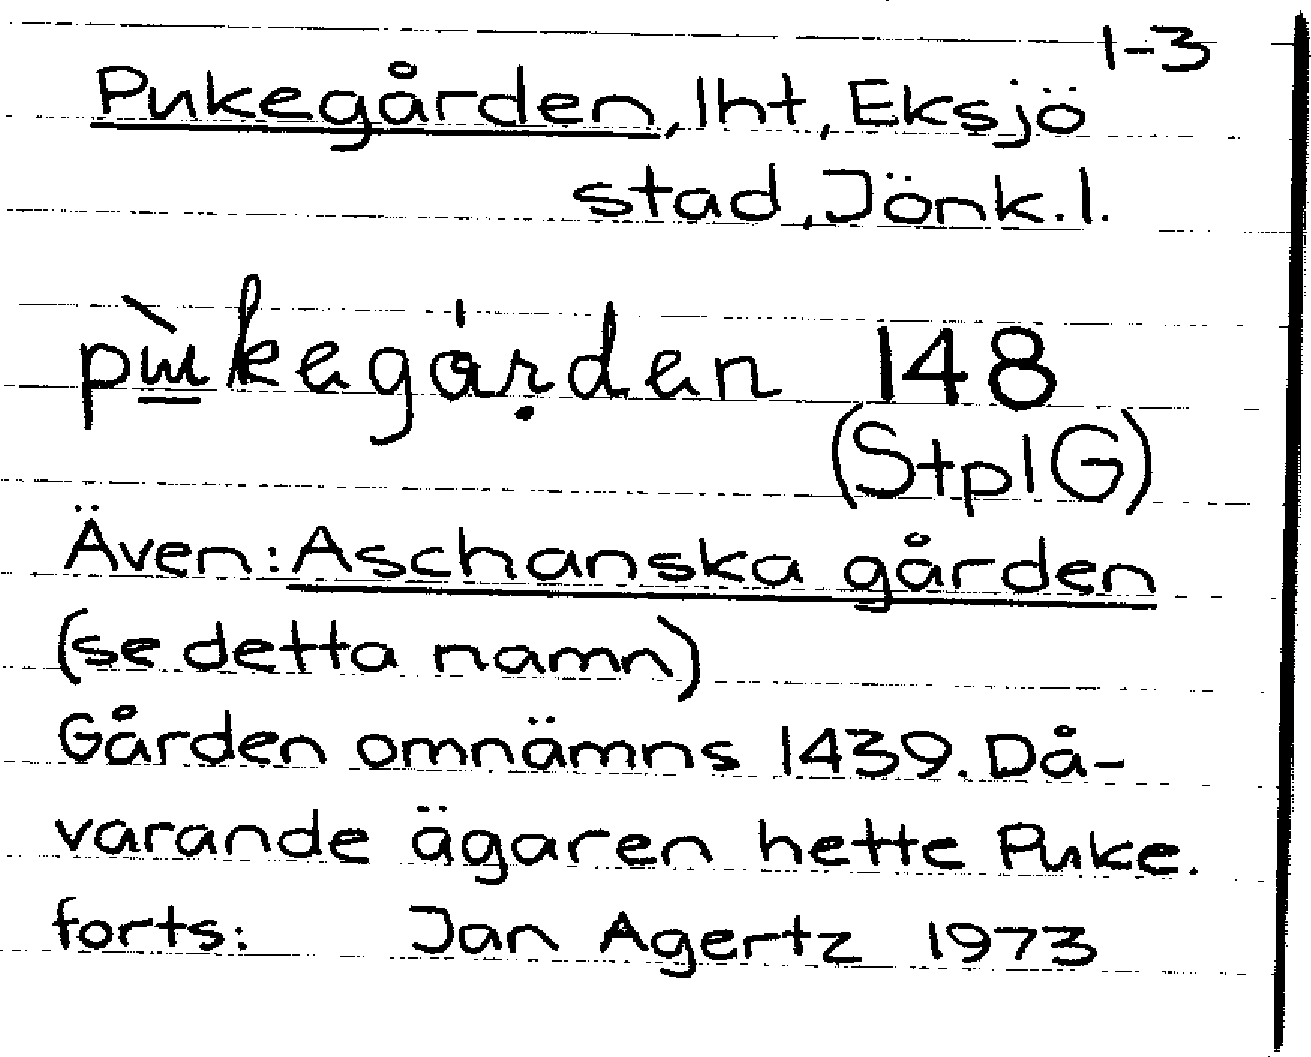 1-3
Pukegården, lht, Eksjö
stad, Jönk.l.
pɯ̲̀kegárḍen 148
(StplG)
Även: Aschanska gården
(se detta namn)
Gården omnämns 1439. Då-
varande ägaren hette Puke.
forts: Jan Agertz 1973